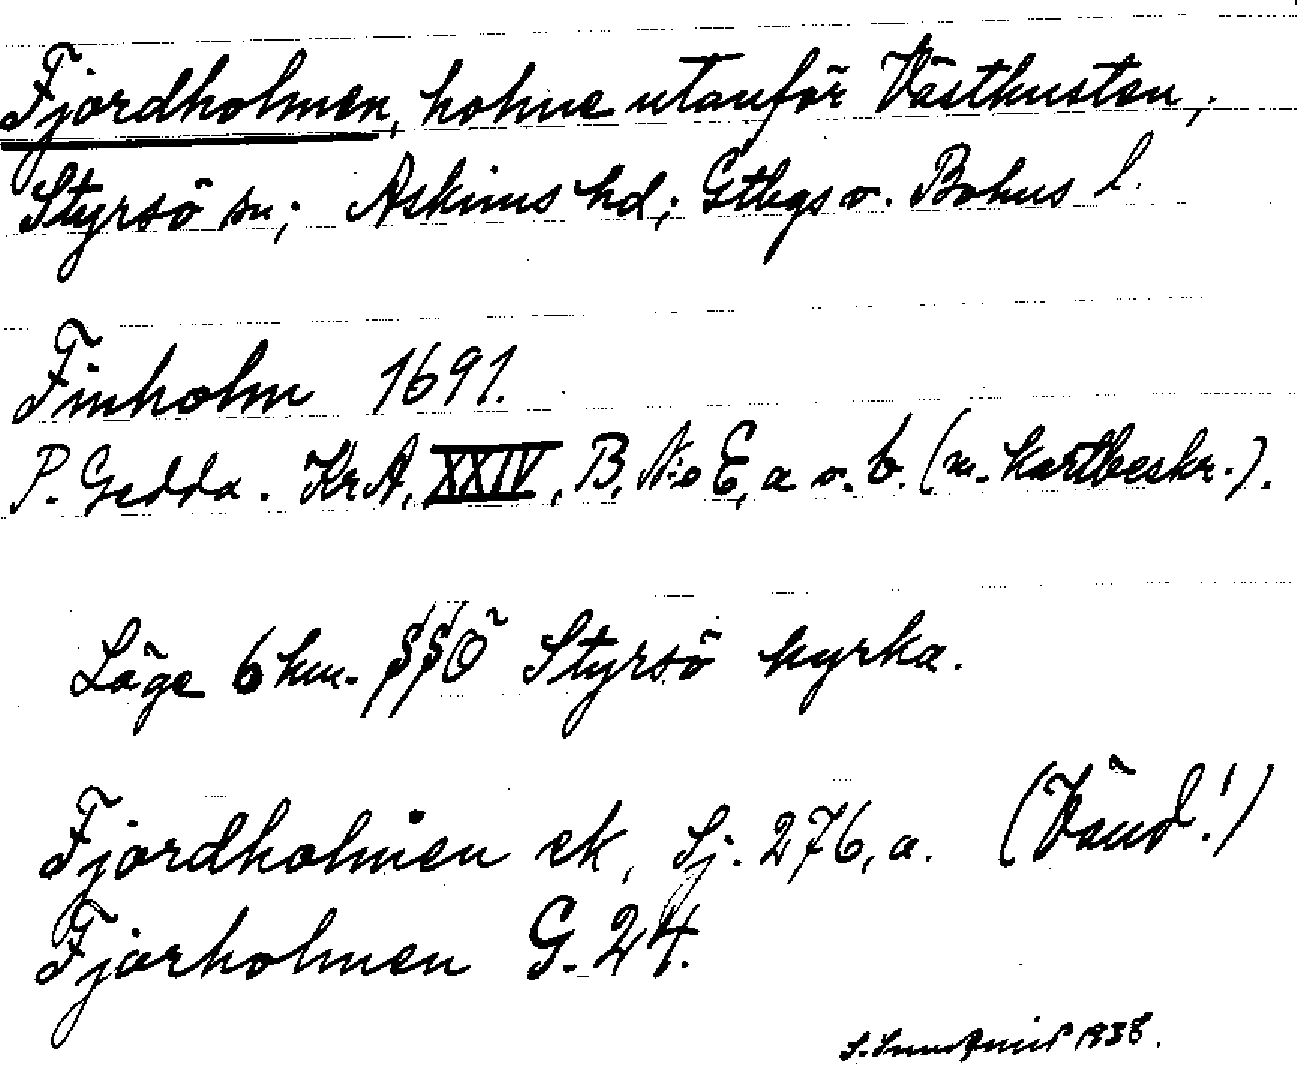 Fjordholmen, holme utanför Västkusten,
Styrsö sn; Askims hd; Gtbgs o. Bohus l.
Finholm 1691.
P. Gedda. Kr.A. XXIV, B, N:o 6, a o. b. (m. kartbeskr.).
Läge 6 km. SSÖ Styrsö kyrka.
Fjordholmen ek, Sj. 276, a. (Vänd!)
Fjorholmen G. 24.
1938.